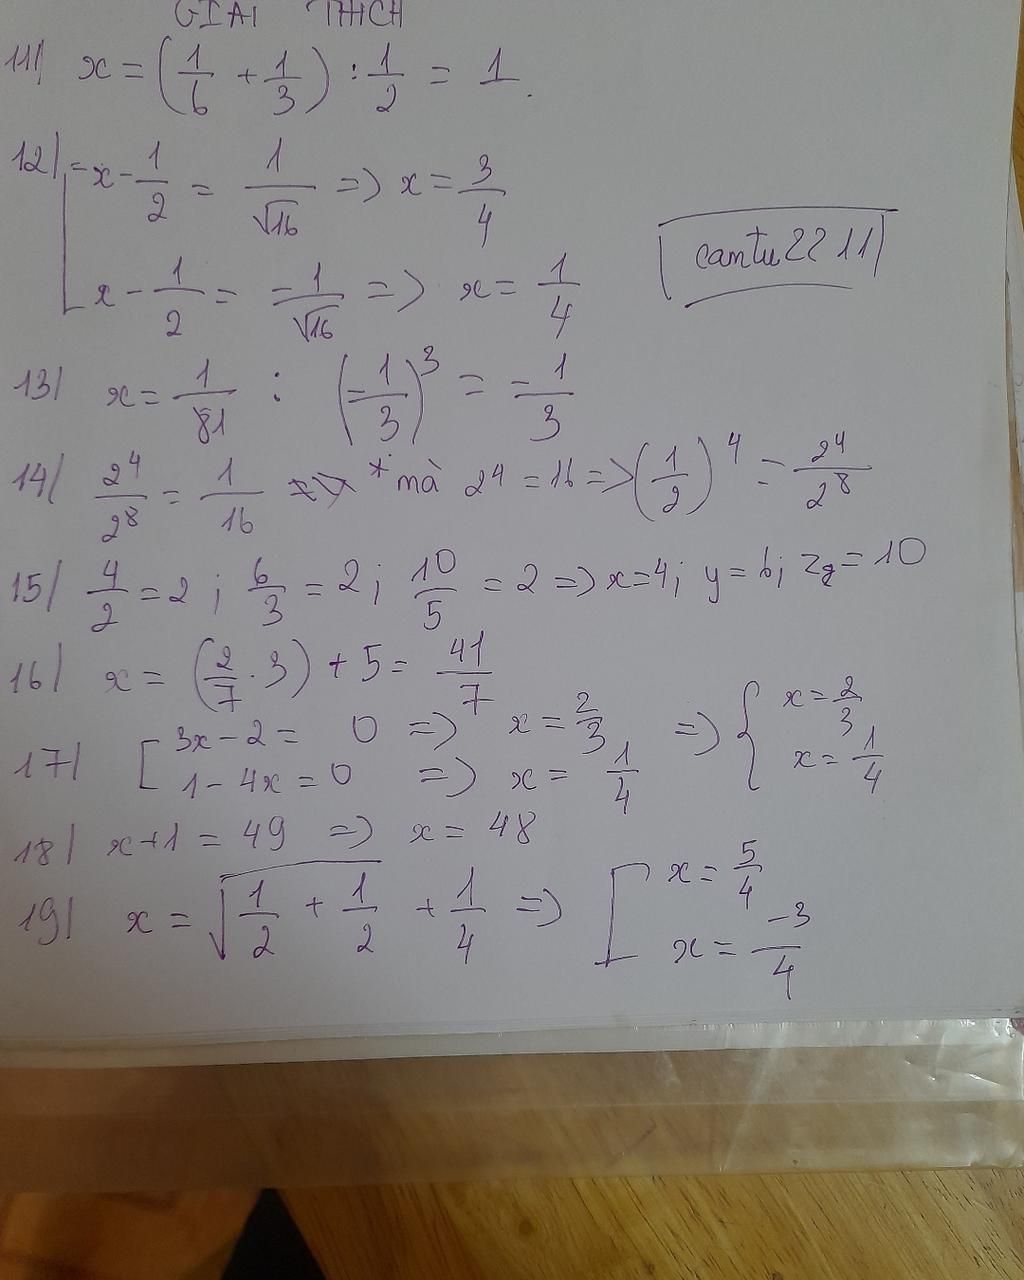 GIẢI THÍCH
11/ x = (1/6 + 1/3) : 1/2 = 1.
12/ [ x - 1/2 = 1/√16 => x = 3/4
x - 1/2 = -1/√16 => x = 1/4
cantu2211
13/ x = 1/81 : (-1/3)^3 = -1/3
14/ 2^4/2^8 = 1/16 * mà 2^4 = 16 => (1/2)^4 = 2^4/2^8
15/ 4/2 = 2 ; 6/3 = 2 ; 10/5 = 2 => x = 4; y = 6; z = 10
16/ x = (2/7 . 3) + 5 = 41/7
17/ [ 3x - 2 = 0 => x = 2/3 => { x = 2/3
1 - 4x = 0 => x = 1/4 x = 1/4
18/ x + 1 = 49 => x = 48
19/ x = √(1/2 + 1/2) + 1/4 => [ x = 5/4
x = -3/4